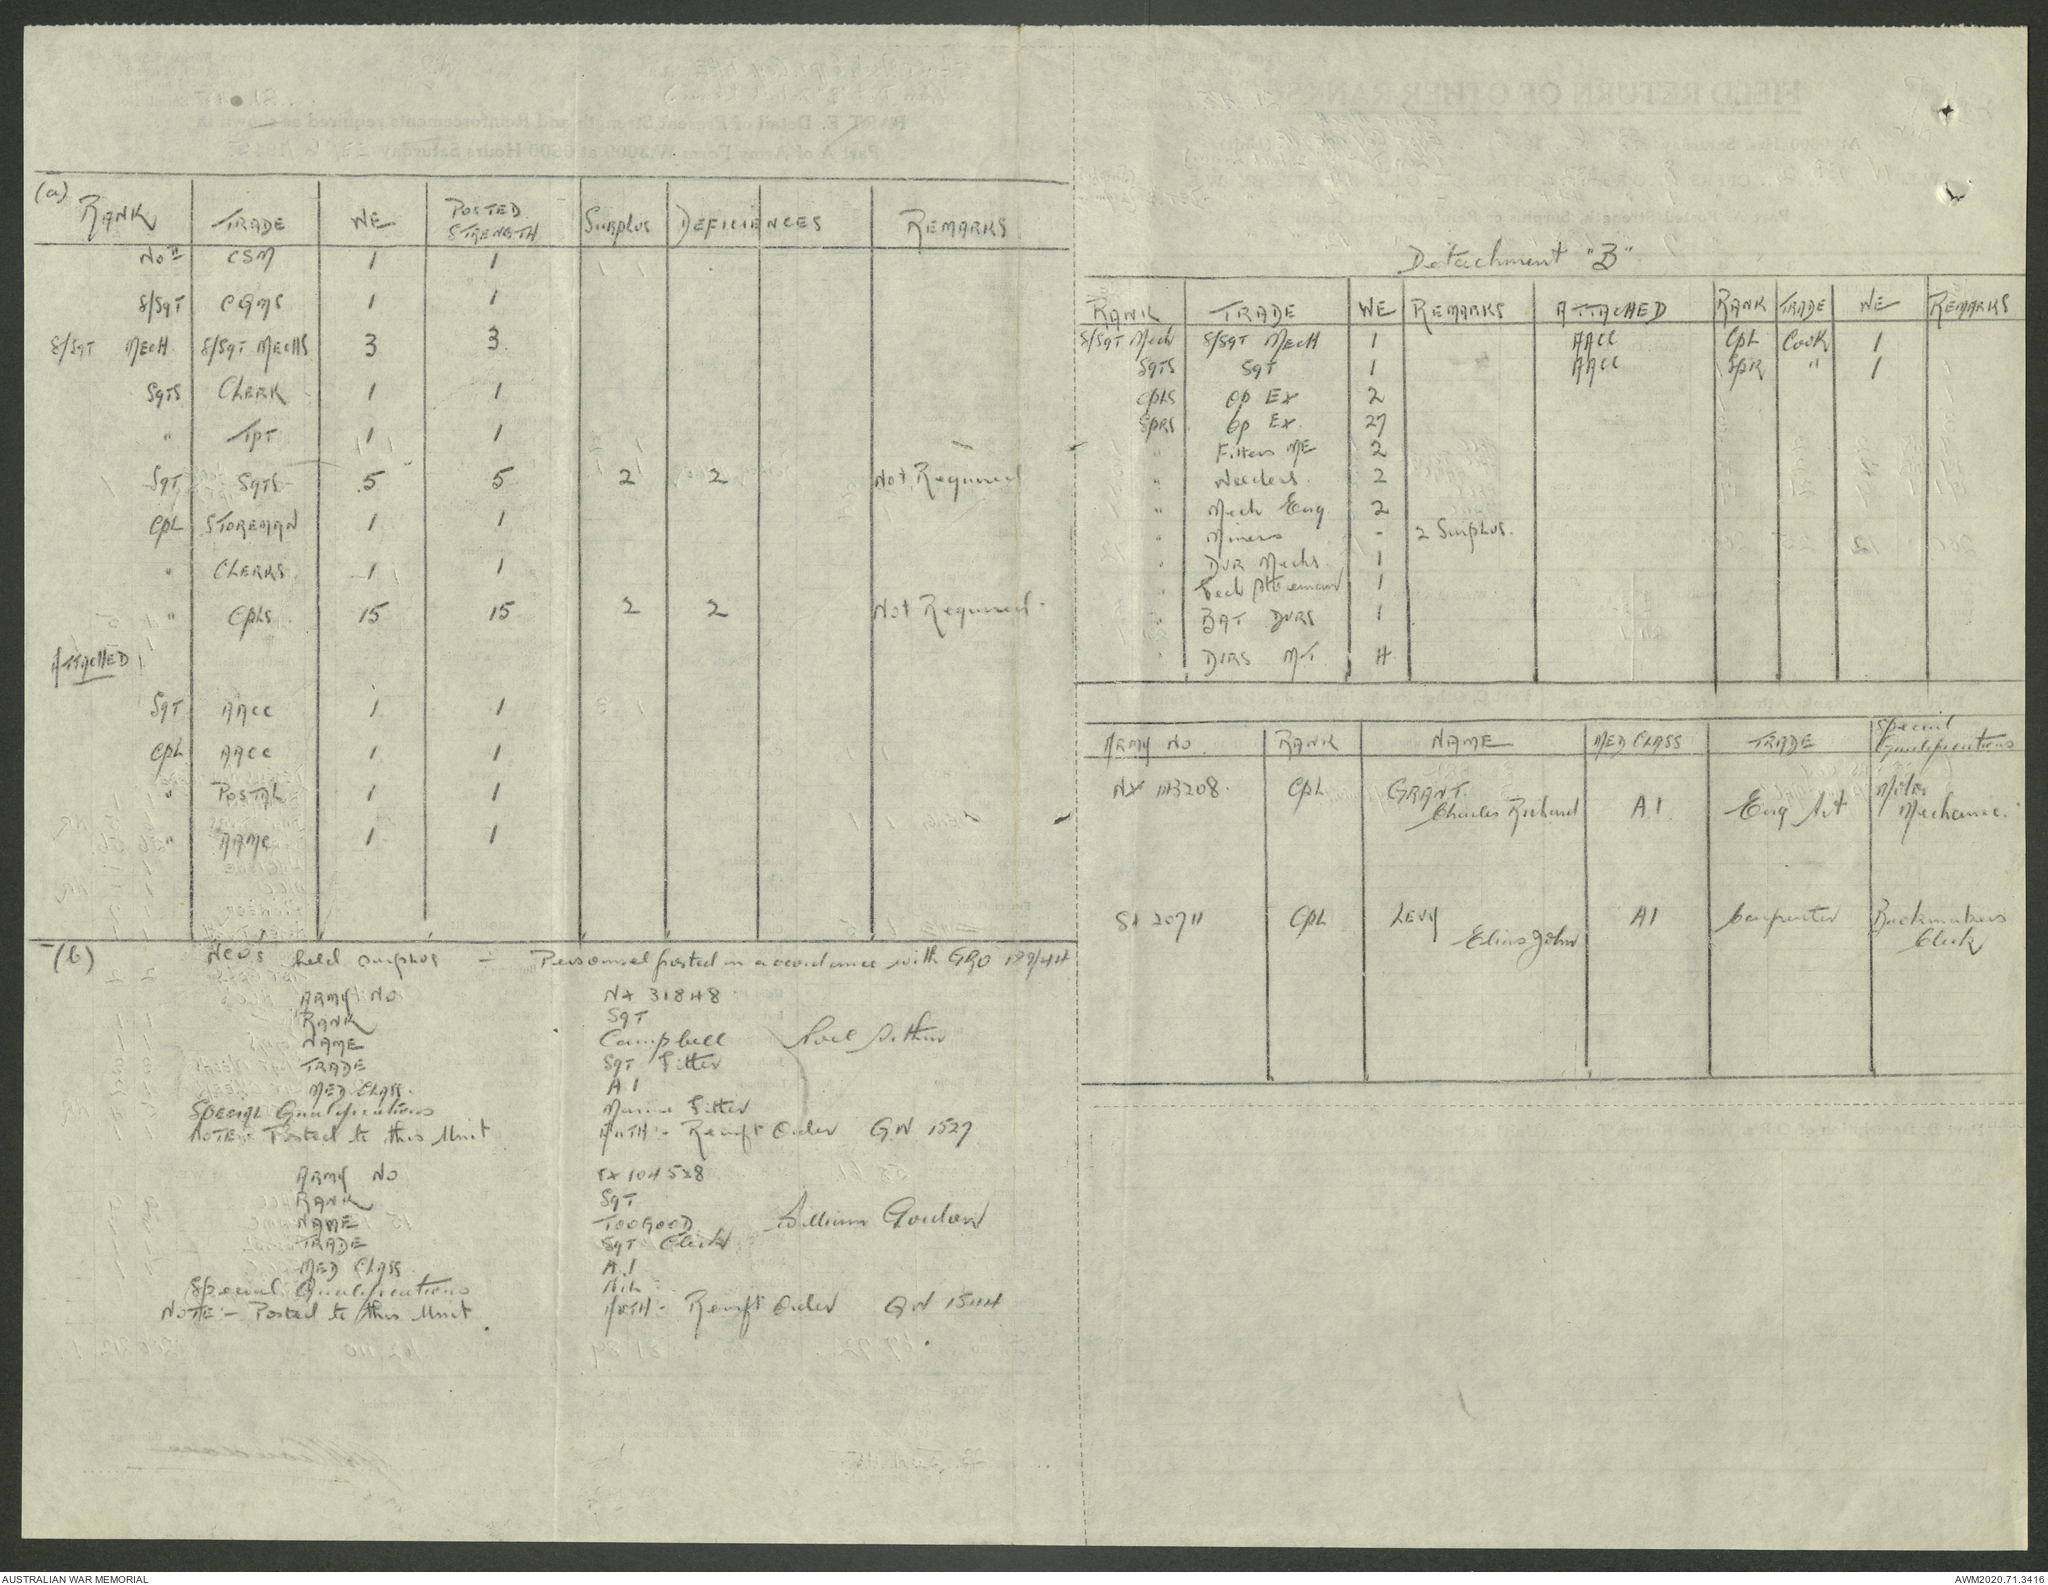 (a)
RANK TRADE WE POSTED STRENGTH SURPLUS DEFICIENCES REMARKS
CSM 1 1
S/SGT CQMS 1 1
S/SGT MECH. S/SGT MECHS 3 3
SGTS CLERK 1 1
" TPT 1 1
SGT SGTS 5 5 2 2 Not Required
CPL STOREMAN 1 1
" CLERKS 1 1
" CPLS 15 15 2 2 Not Required.
ATTACHED
SGT AACC 1 1
CPL AACC 1 1
" POSTAL 1 1
" AAMC 1 1
(b) NCO's held surplus - Personnel posted in accordance with GRO 189/44
ARMY NO NX 31848
RANK SGT
NAME Campbell Noel Arthur
TRADE SGT Fitter
MED CLASS. A.1
SPECIAL Qualifications Marine Fitter
NOTE:- Posted to this Unit AUTH:- Reinft Order GW 1527
ARMY NO 104528
RANK SGT
NAME TOOGOOD William Gordon
TRADE SGT Clerk
MED CLASS A.1
Special Qualifications NIL
NOTE:- Posted to this Unit. AUTH:- Reinft Order GW 1544
Detachment "B".
RANK TRADE WE REMARKS ATTACHED RANK TRADE WE REMARKS
S/SGT Mech S/SGT MECH 1 AACC CPL COOK 1
SGTS SGT 1 AACC SPR " 1
CPLS Op Ex 2
SPRS Op Ex. 27
" Fitters ME 2
" Welders. 2
" Mech Eng 2
" Miners - 2 Surplus.
" DVR Mechs. 1
" Tech Storeman 1
" BAT DVRS 1
" DVRS M.T. 4
ARMY NO. RANK NAME MED CLASS TRADE Special Qualifications
NX 113208. CPL GRANT. Charles Richard A.1. Eng Art Motor Mechanic.
20711 CPL LEVY Elias John A1 Carpenter Bookmakers Clerk
AUSTRALIAN WAR MEMORIAL
AWM2020.71.3416